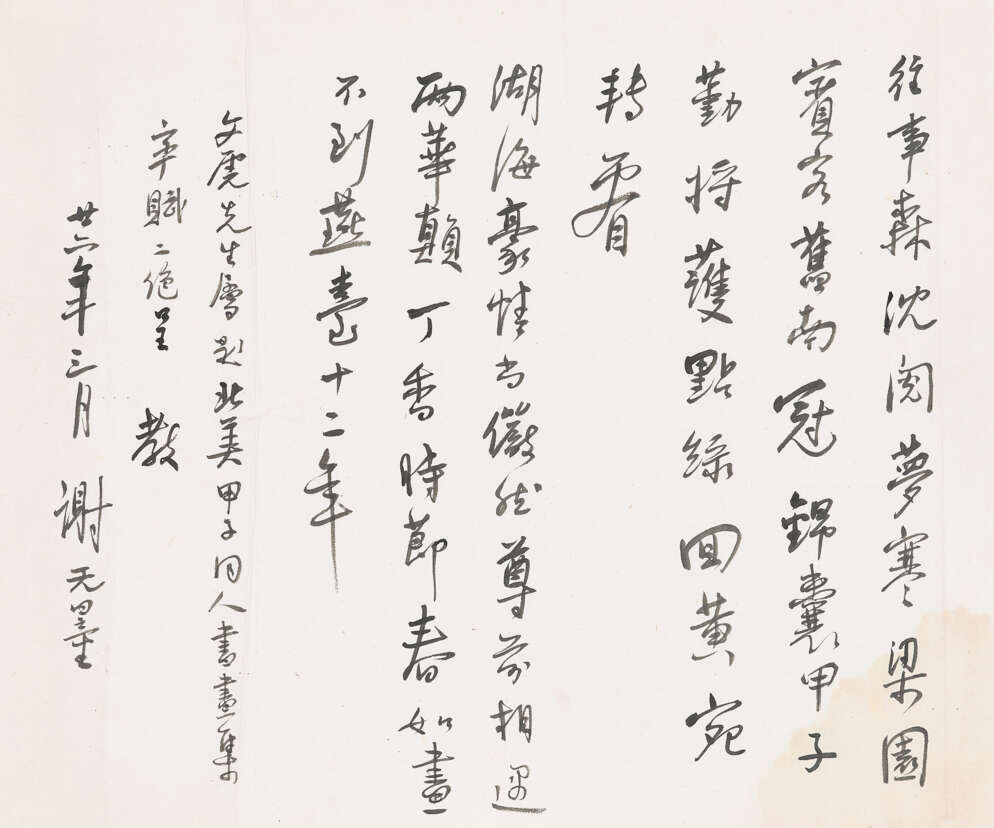 往事森沈閱夢寒梁園
賓客舊南冠錦囊甲子
勤將護點綠回黃宛
轉看
湖海豪情尚儼然尊前相遇
兩華顛丁香時節春如畫
不到燕臺十二年
文虎先生屬題北美甲子同人書畫集
率賦二絕呈 教
廿六年三月 謝无量